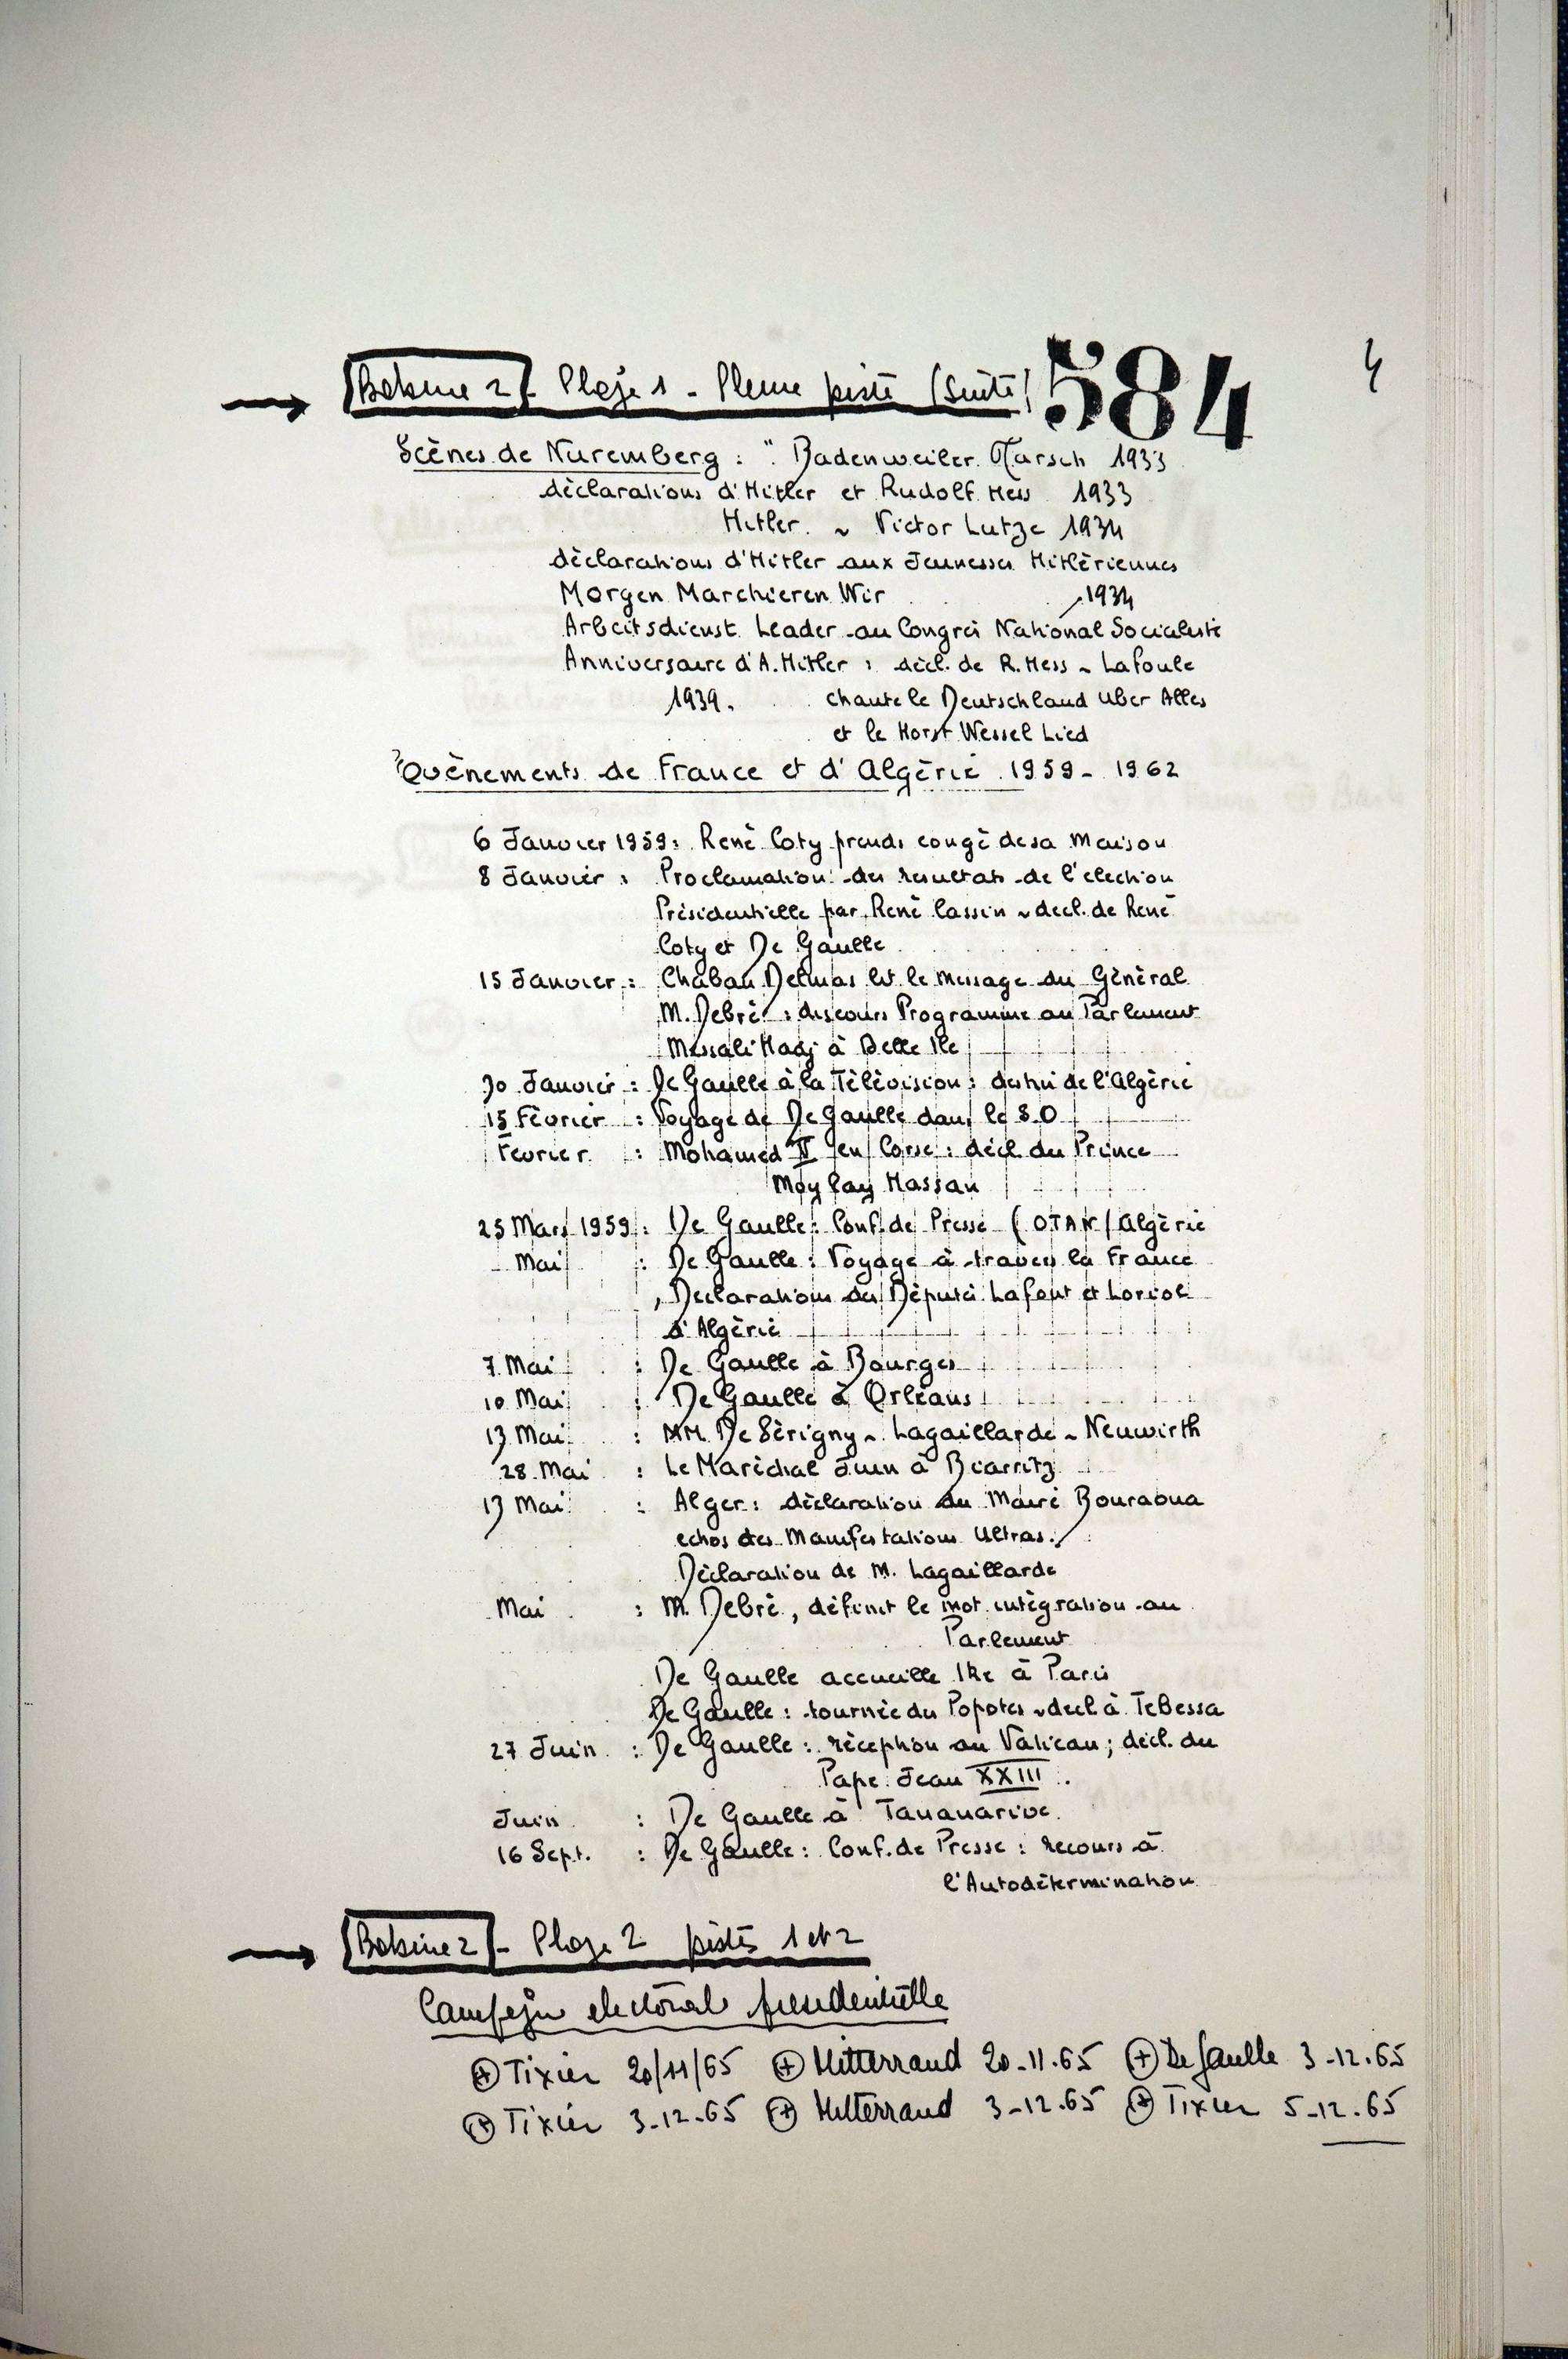 → Bobine 2 - Plage 1 - Pleine piste (Suite) 584 4
Scènes de Nuremberg : " Badenweiler Marsch 1933
déclarations d'Hitler et Rudolf Hess 1933
Hitler ~ Victor Lutze 1934
déclarations d'Hitler aux Jeunesses Hitlériennes
Morgen Marchieren Wir 1934
Arbeitsdienst Leader au Congrès National Socialiste
Anniversaire d'A. Hitler : décl. de R. Hess ~ La foule
1939. chante le Deutschland Uber Alles
et le Horst Wessel Lied
Evènements de France et d'Algérie 1959 - 1962
6 Janvier 1959 : René Coty prends congé de sa Maison
8 Janvier : Proclamation des resultats de l'election
Présidentielle par René Cassin ~ decl. de René
Coty et De Gaulle
15 Janvier : Chaban Delmas lit le message du Général
M. Debré : discours Programme au Parlement
Messali Hadj à Belle Ile
30 Janvier : De Gaulle à la Télévision : destin de l'Algérie
15 Février : Voyage de De Gaulle dans le S.O
Fevrier : Mohamed II en Corse : décl du Prince
Moylay Hassan
25 Mars 1959 : De Gaulle : Conf. de Presse ( OTAN / Algérie
Mai : De Gaulle : Voyage à travers la France
, Declarations des Députés Lafont et Loriol
d'Algérie
7 Mai : De Gaulle à Bourges
10 Mai : De Gaulle à Orléans
13 Mai : MM. De Sérigny ~ Lagaillarde ~ Neuwirth
28 Mai : Le Maréchal Juin à Biarritz
13 Mai : Alger : déclaration du Maire Bouraoua
echos des Manifestations Ultras.
Déclaration de M. Lagaillarde
Mai : M. Debré, définit le mot intégration au
Parlement
De Gaulle accueille Ike à Paris
De Gaulle : tournée du Popotes ~ decl à Tebessa
27 Juin : De Gaulle : réception au Vatican ; décl. du
Pape Jean XXIII.
Juin : De Gaulle à Tananarive.
16 Sept. : De Gaulle : Conf. de Presse : recours à
l'Autodétermination
→ Bobine 2 - Plage 2 pistes 1 et 2
Campagne electorale presidentielle
⊕ Tixier 20/11/65 ⊕ Mitterrand 20-11.65 ⊕ De Gaulle 3-12.65
⊕ Tixier 3-12-65 ⊕ Mitterrand 3-12.65 ⊕ Tixier 5-12.65